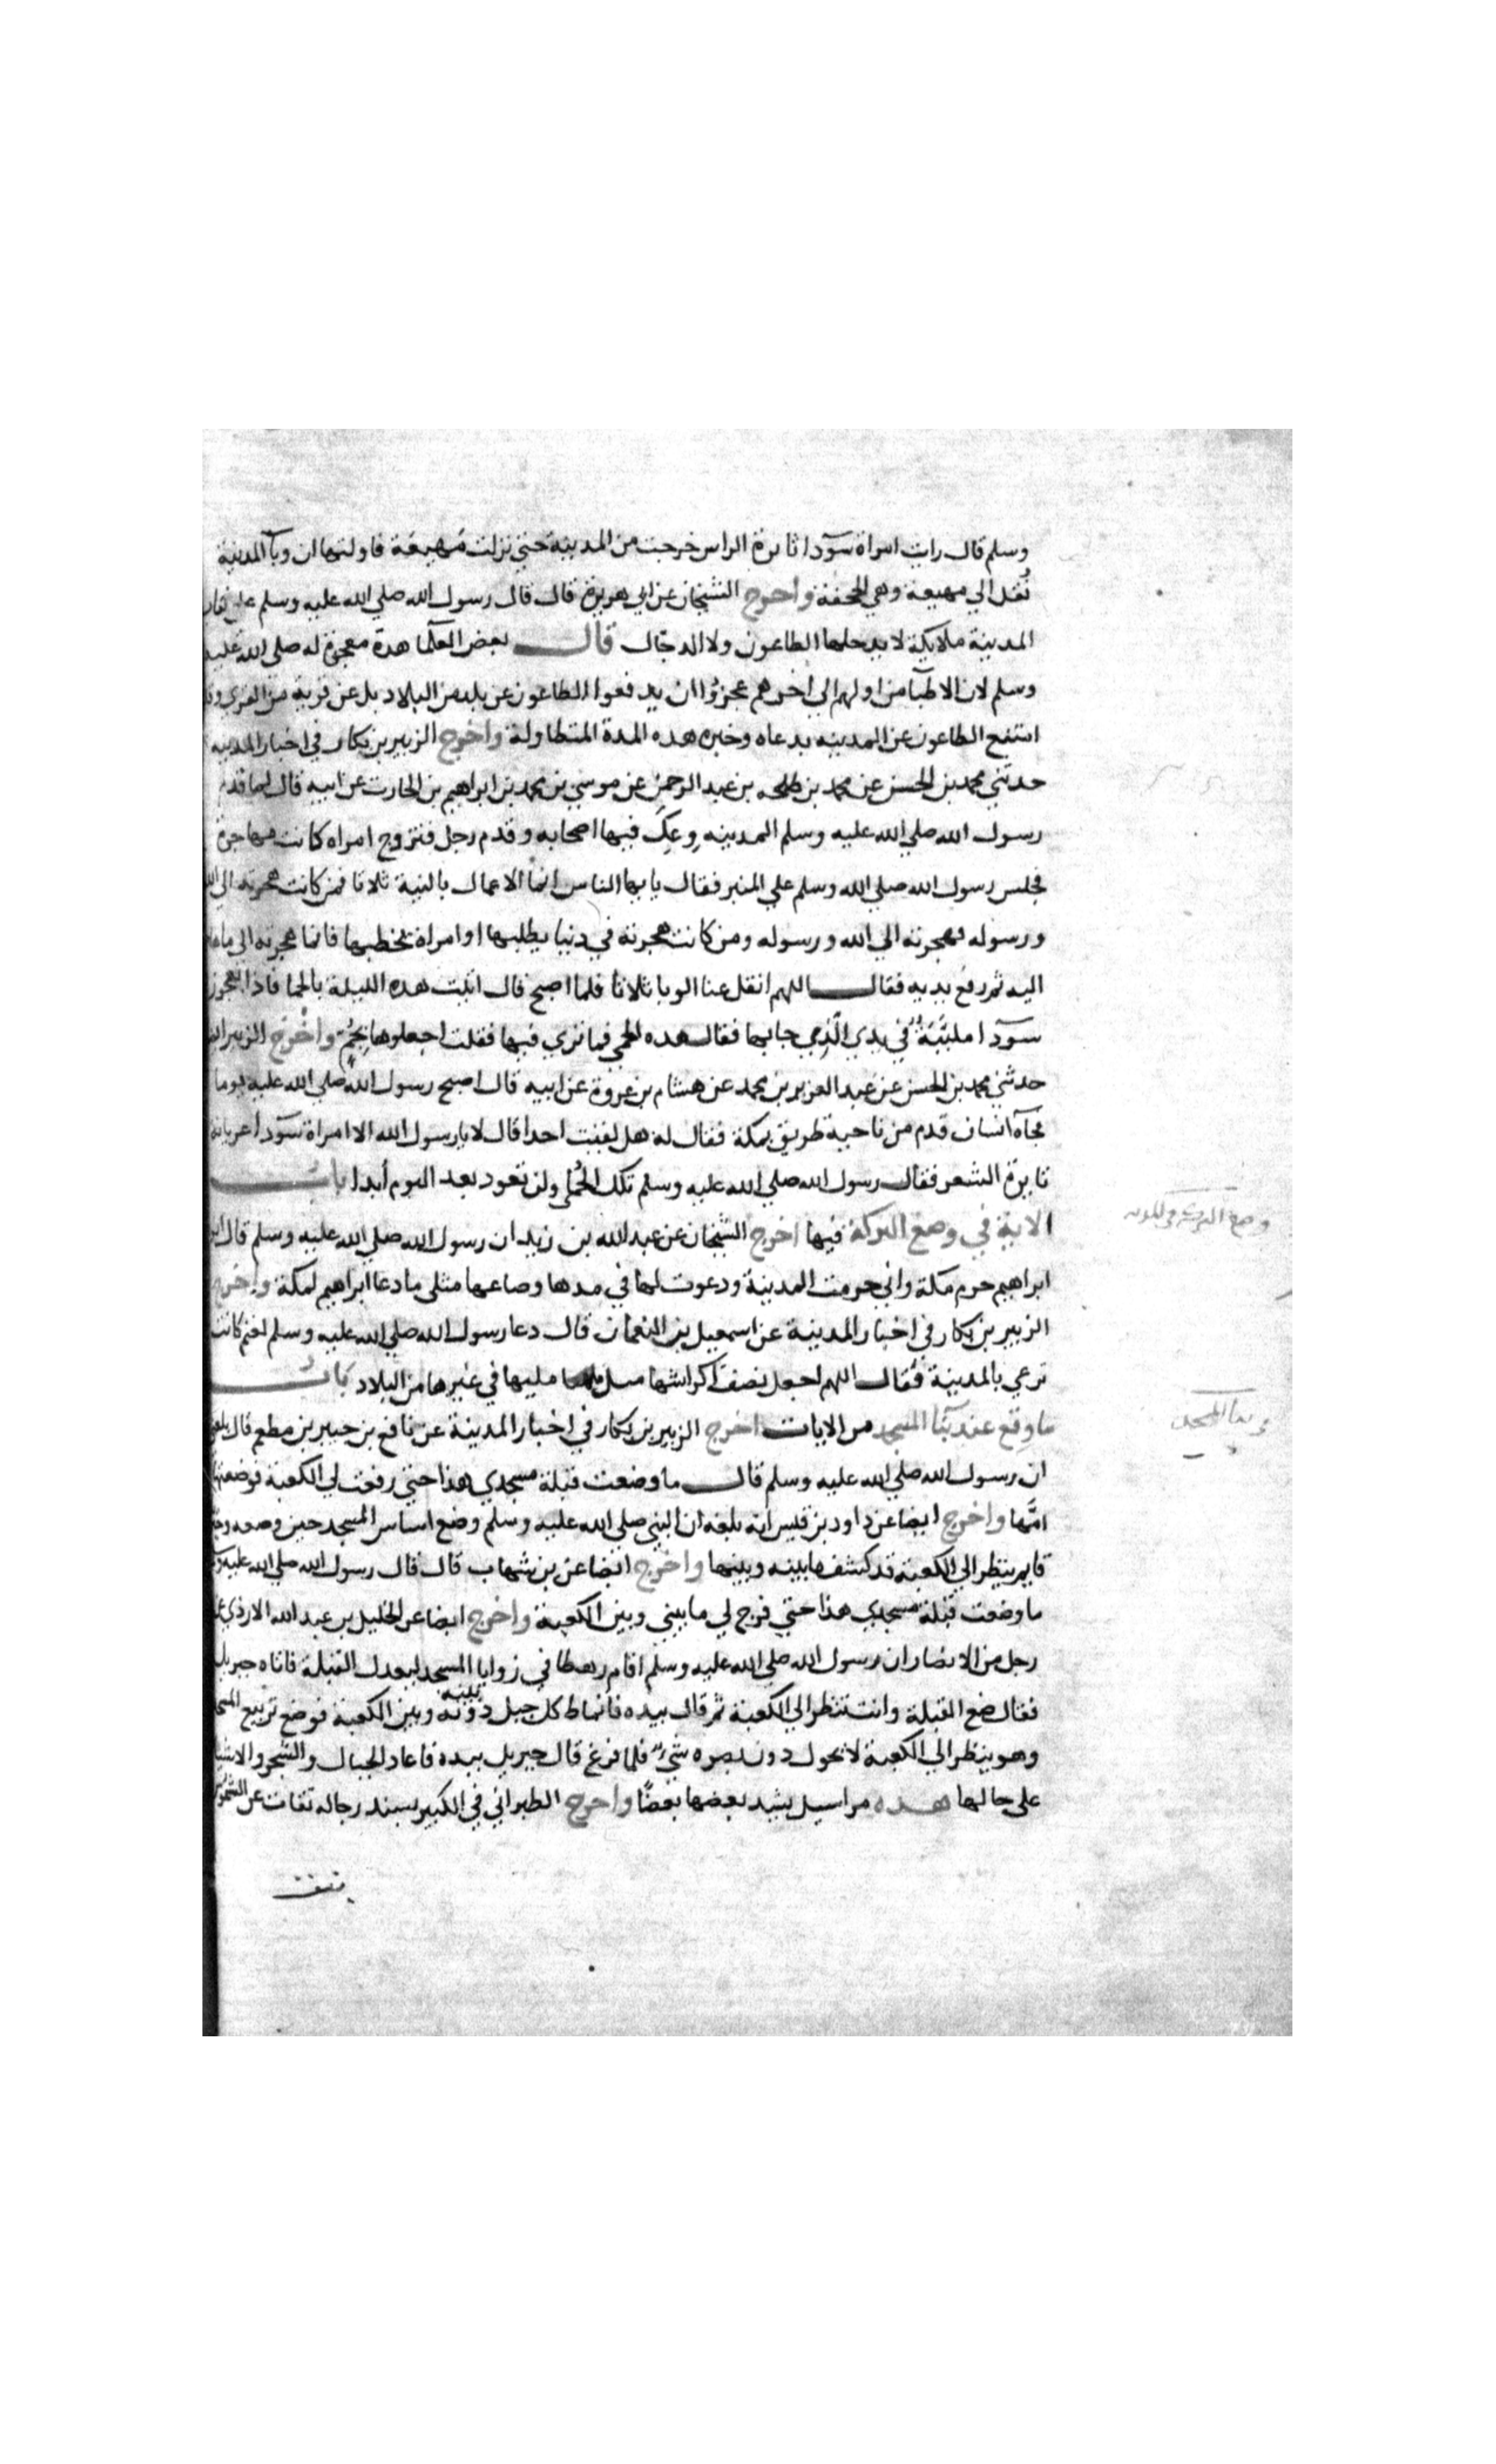 وسلم قال رايت امراة سودا ثايرة الراس خرجت من المدينة حتي نزلت مهيعة فاولتها ان وبآ المدينة
نقل الي مهيعة وهي الجحفة واخرج الشيخان عن ابي هريرة قال قال رسول الله صلي الله عليه وسلم علي انقاب
المدينة ملايكة لا يدخلها الطاعون ولا الدجال قال بعض العلما هذه معجزة له صلي الله عليه
وسلم لان الاطبآ من اولهم الي اخرهم عجزوا ان يدفعوا الطاعون عن بلد من البلاد بل عن قرية من القري وقد
امتنع الطاعون عن المدينه بدعاه وخبره هذه المدة المتطاولة واخرج الزبير بن بكار في اخبار المدينه
حدثني محمد بن الحسن عن محمد بن طلحه بن عبد الرحمن عن موسي بن محمد بن ابراهيم بن الحارث عن ابيه قال لما قدم
رسول الله صلي الله عليه وسلم المدينه وعك فيها اصحابه وقدم رجل فتزوج امراه كانت مهاجرة
فجلس رسول الله صلي الله وسلم علي المنبر فقال يايها الناس انما الاعمال بالنية ثلاثا فمن كانت هجرته الي الله
ورسوله فهجرته الي الله ورسوله ومن كانت هجرته في دنيا يطلبها او امراة يخطبها فانما هجرته الي ما هاجر
اليه ثم رفع يديه فقال اللهم انقل عنا الوبا ثلاثا فلما اصبح قال اتيت هذه الليلة بالحما فاذا بعجوز
سودا ملببة في يدي الذي جا بها فقال هذه الحمي فما تري فيها فقلت اجعلوها بخم واخرج الزبير ايضا
حدثني محمد بن الحسن عن عبد العزيز بن محمد عن هشام بن عروة عن ابيه قال اصبح رسول الله صلي الله عليه يوما
فجآه انسان قدم من ناحية طريق مكة فقال له هل لقيت احدا قال لا يا رسول الله الا امراة سودا عريانة
ثايرة الشعر فقال رسول الله صلي الله عليه وسلم تلك الحمي ولن تعود بعد اليوم أبدا باب
الاية في وضع البركة فيها اخرج الشيخان عن عبد الله بن زيد ان رسول الله صلي الله عليه وسلم قال ان
ابراهيم حرم مكة واني حرمت المدينة ودعوت لها في مدها وصاعها مثلي ما دعا ابراهيم لمكة واخرج
الزبير بن بكار في اخبار المدينة عن اسمعيل بن النعمان قال دعا رسول الله صلي الله عليه وسلم لغنم كانت
ترعي بالمدينة فقال اللهم اجعل نصف اكراشها مثل مليها في غيرها من البلاد باب
ما وقع عند بنآ المسجد من الايات اخرج الزبير بن بكار في اخبار المدينة عن نافع بن جبير بن مطعم قال بلغني
ان رسول الله صلي الله عليه وسلم قال ما وضعت قبلة مسجدي هذا حتي رفعت لي الكعبة فوضعتها
امها واخرج ايضا عن داود بن قيس انه بلغه ان النبي صلي الله عليه وسلم وضع اساس المسجد حين وضعه وجبريل
قايم ينظر الي الكعبة قد كشف ما بينه وبينها واخرج ايضا عن بن شهاب قال قال رسول الله صلي الله عليه
ما وضعت قبلة مسجدي هذا حتي فرج لي ما بيني وبين الكعبة واخرج ايضا عن الخليل بن عبد الله الازدي عن
رجل من الانصار ان رسول الله صلي الله عليه وسلم اقام رهطا في زوايا المسجد ليعدل القبلة فاتاه جبريل
فقال ضع القبلة وانت تنظر الي الكعبة ثم قال بيده فانماط كل جبل دونه بينه وبين الكعبة فوضع تربيع المسجد
وهو ينظر الي الكعبة لا يحول دون بصره شيء فلما فرغ قال جبريل بيده فاعاد الجبال والشجر والاشيا
علي حالها هذه مراسيل يشد بعضها بعضا واخرج الطبراني في الكبير بسند رجاله ثقات عن الشموس
وضع البركة
بنا المسجد
بنت